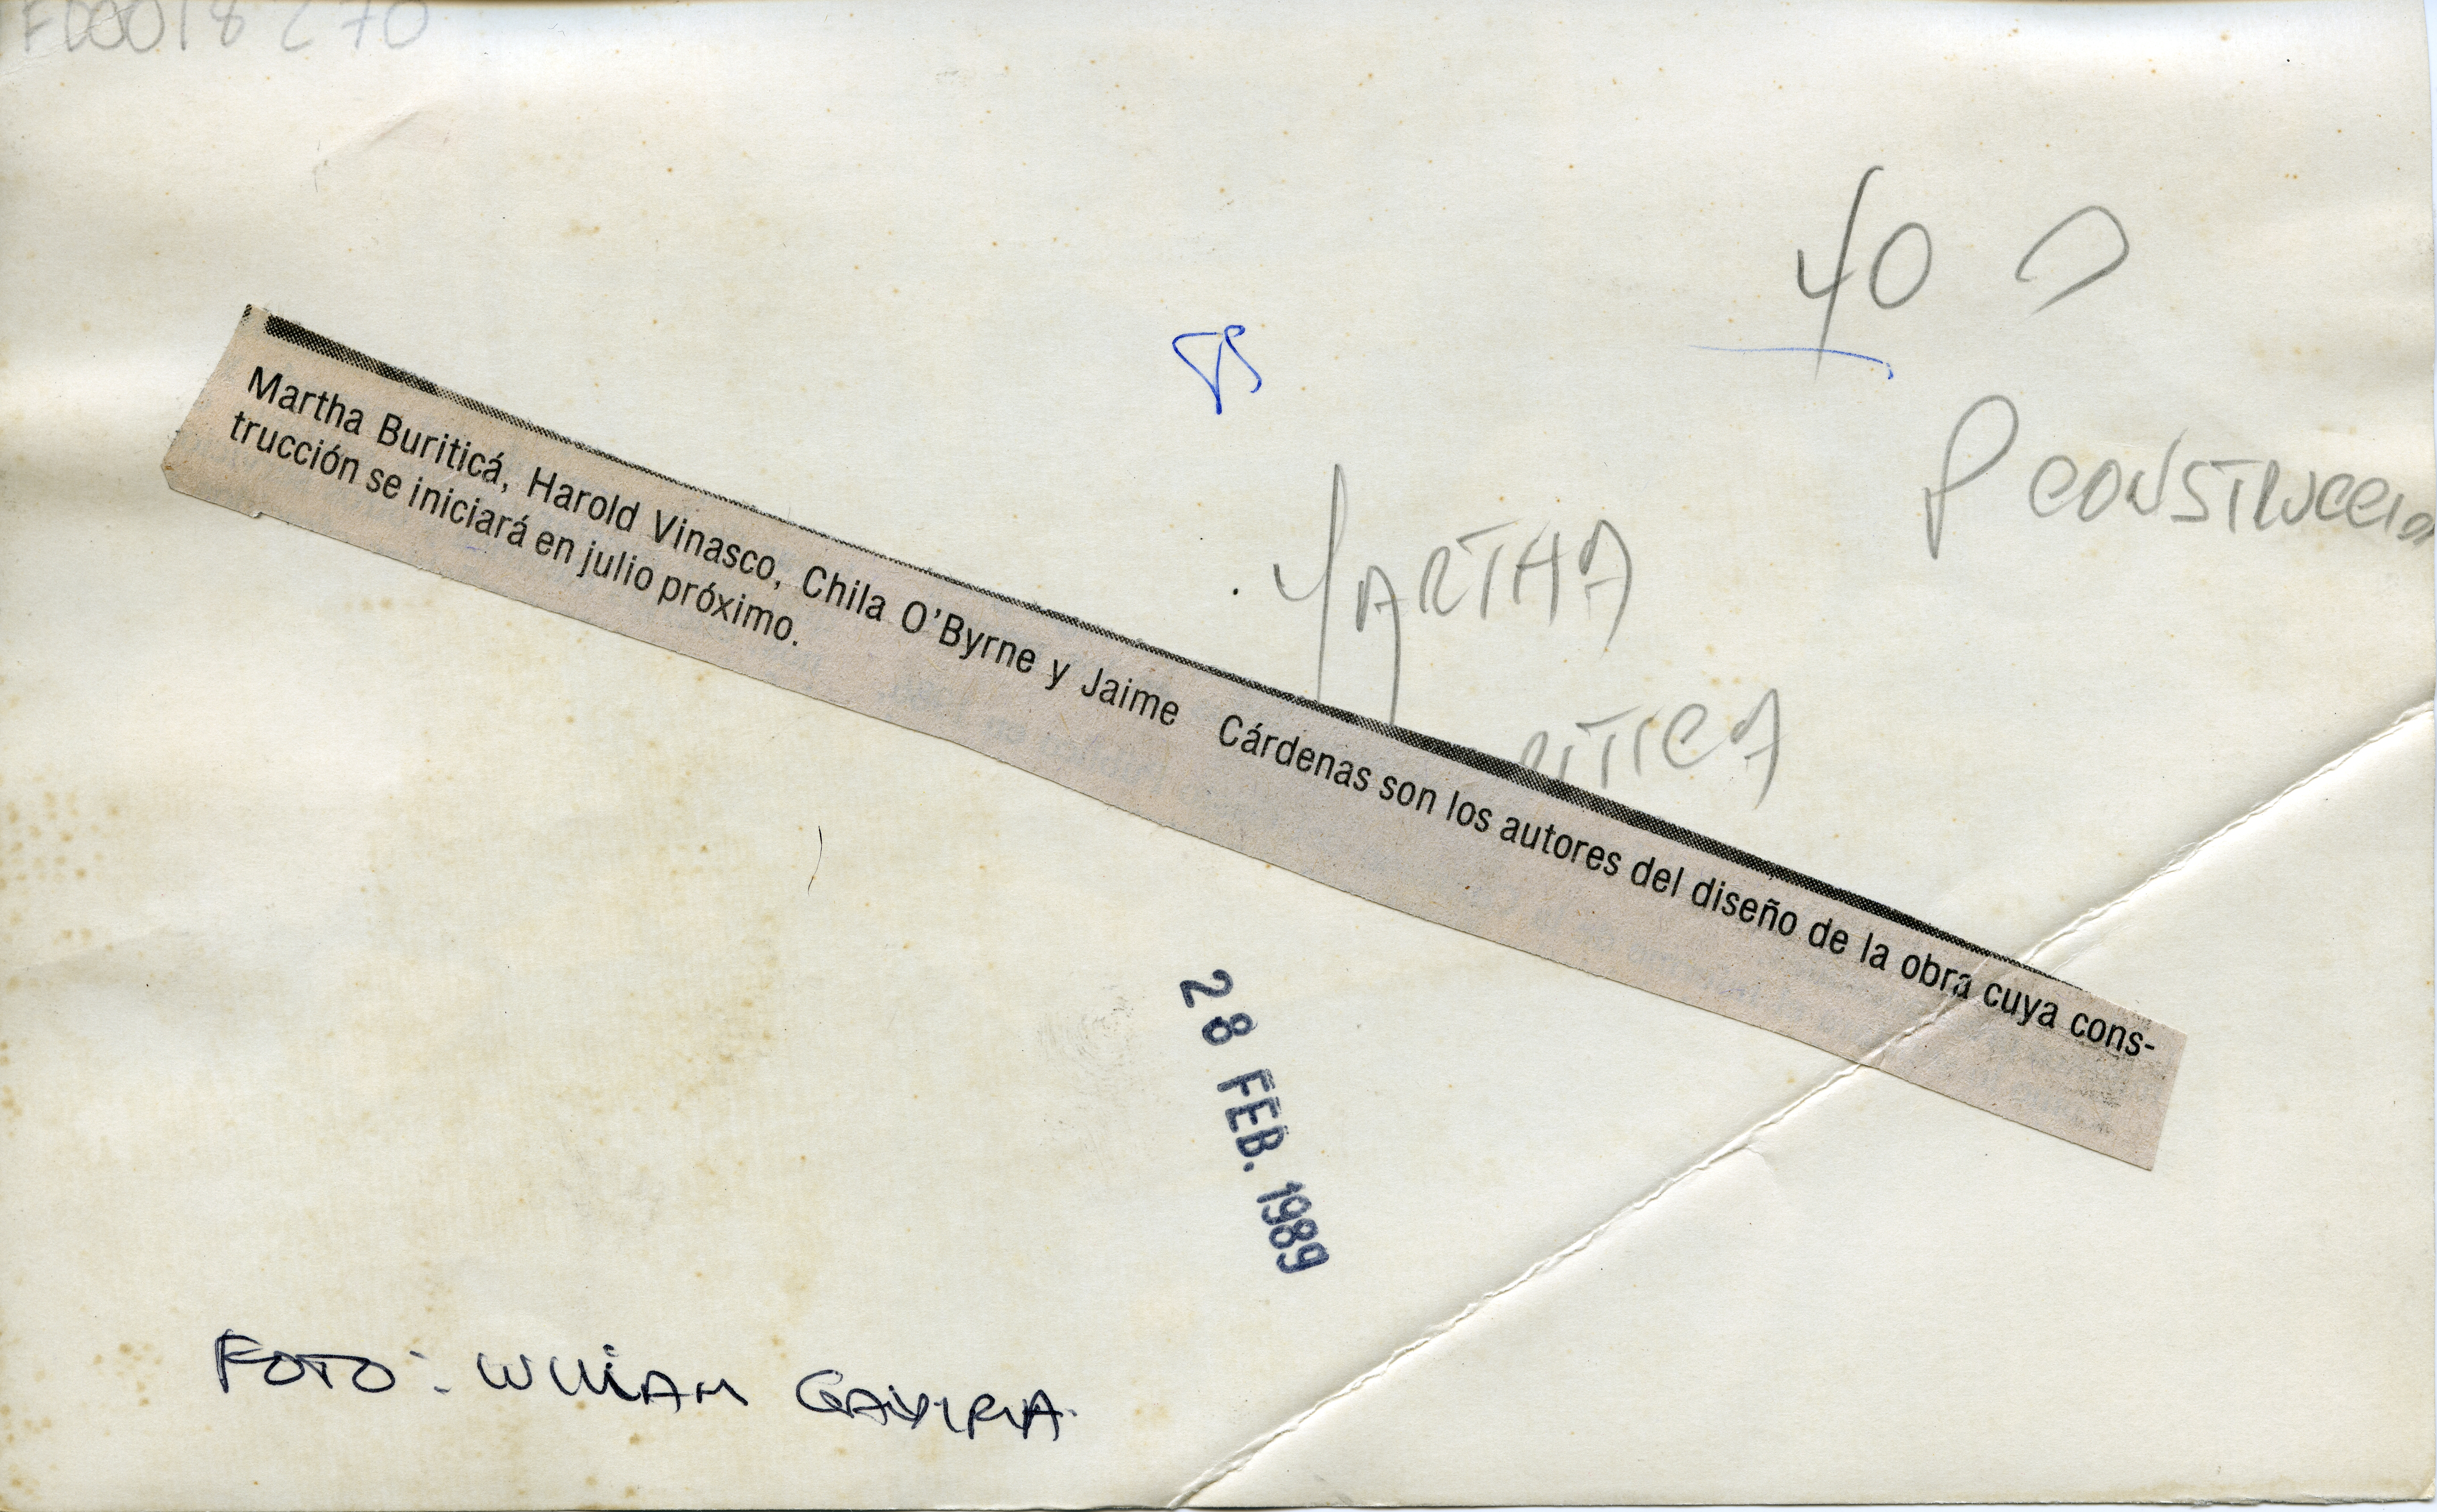 FD0018270
40
85
P CONSTRUCCIO
MARTHA
RITICA
Martha Buriticá, Harold Vinasco, Chila O'Byrne y Jaime Cárdenas son los autores del diseño de la obra cuya cons-
trucción se iniciará en julio próximo.
28 FEB. 1989
FOTO: WILLIAM GAVIRIA.